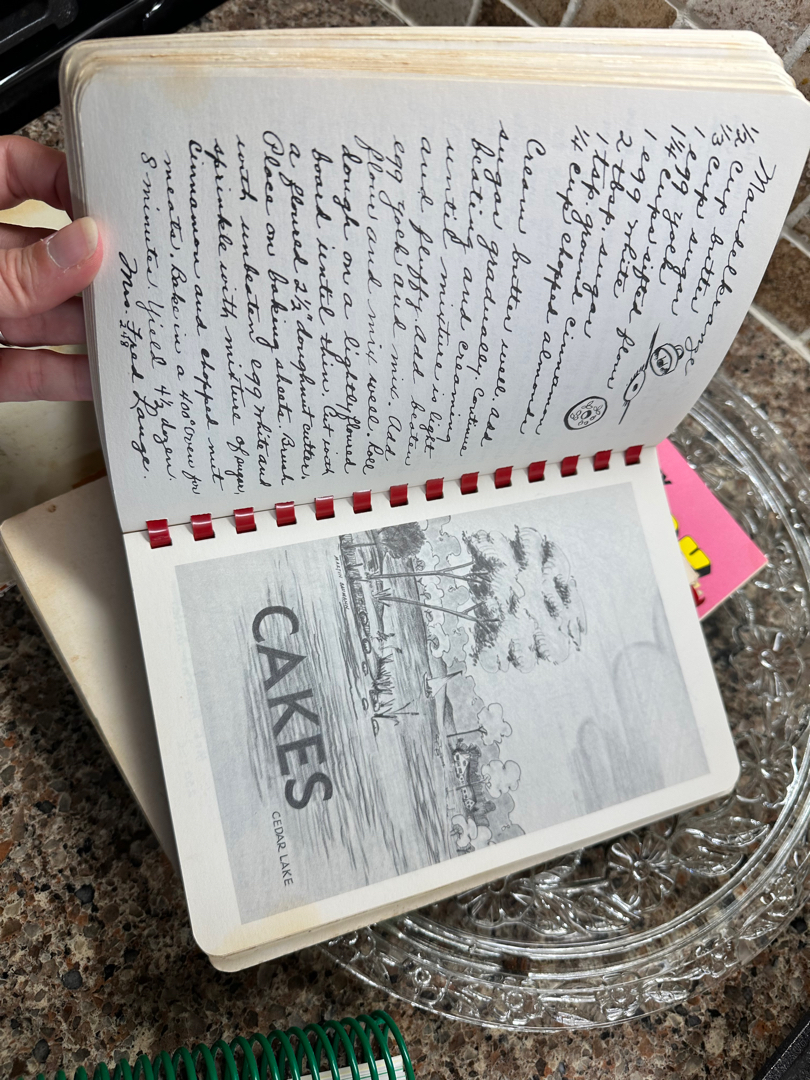 Mandelkränze
1/2 cup butter
1/3 cup sugar
1 egg yolk
1 1/4 cups sifted flour
1 egg white
2 tbsp. sugar
1 tsp. ground cinnamon
1/4 cup chopped almonds
Cream butter well, add
sugar gradually. Continue
beating and creaming
until mixture is light
and fluffy. Add beaten
egg yolk and mix. Add
flour and mix well. Roll
dough on a lightly floured
board until thin. Cut with
a floured 2 1/2" doughnut cutter.
Place on baking sheets. Brush
with unbeaten egg white and
sprinkle with mixture of sugar,
cinnamon and chopped nut
meats. Bake in a 400° oven for
8 minutes. Yield 4 1/2 dozen.
Mrs. Fred Lange.
218
CAKES
CEDAR LAKE